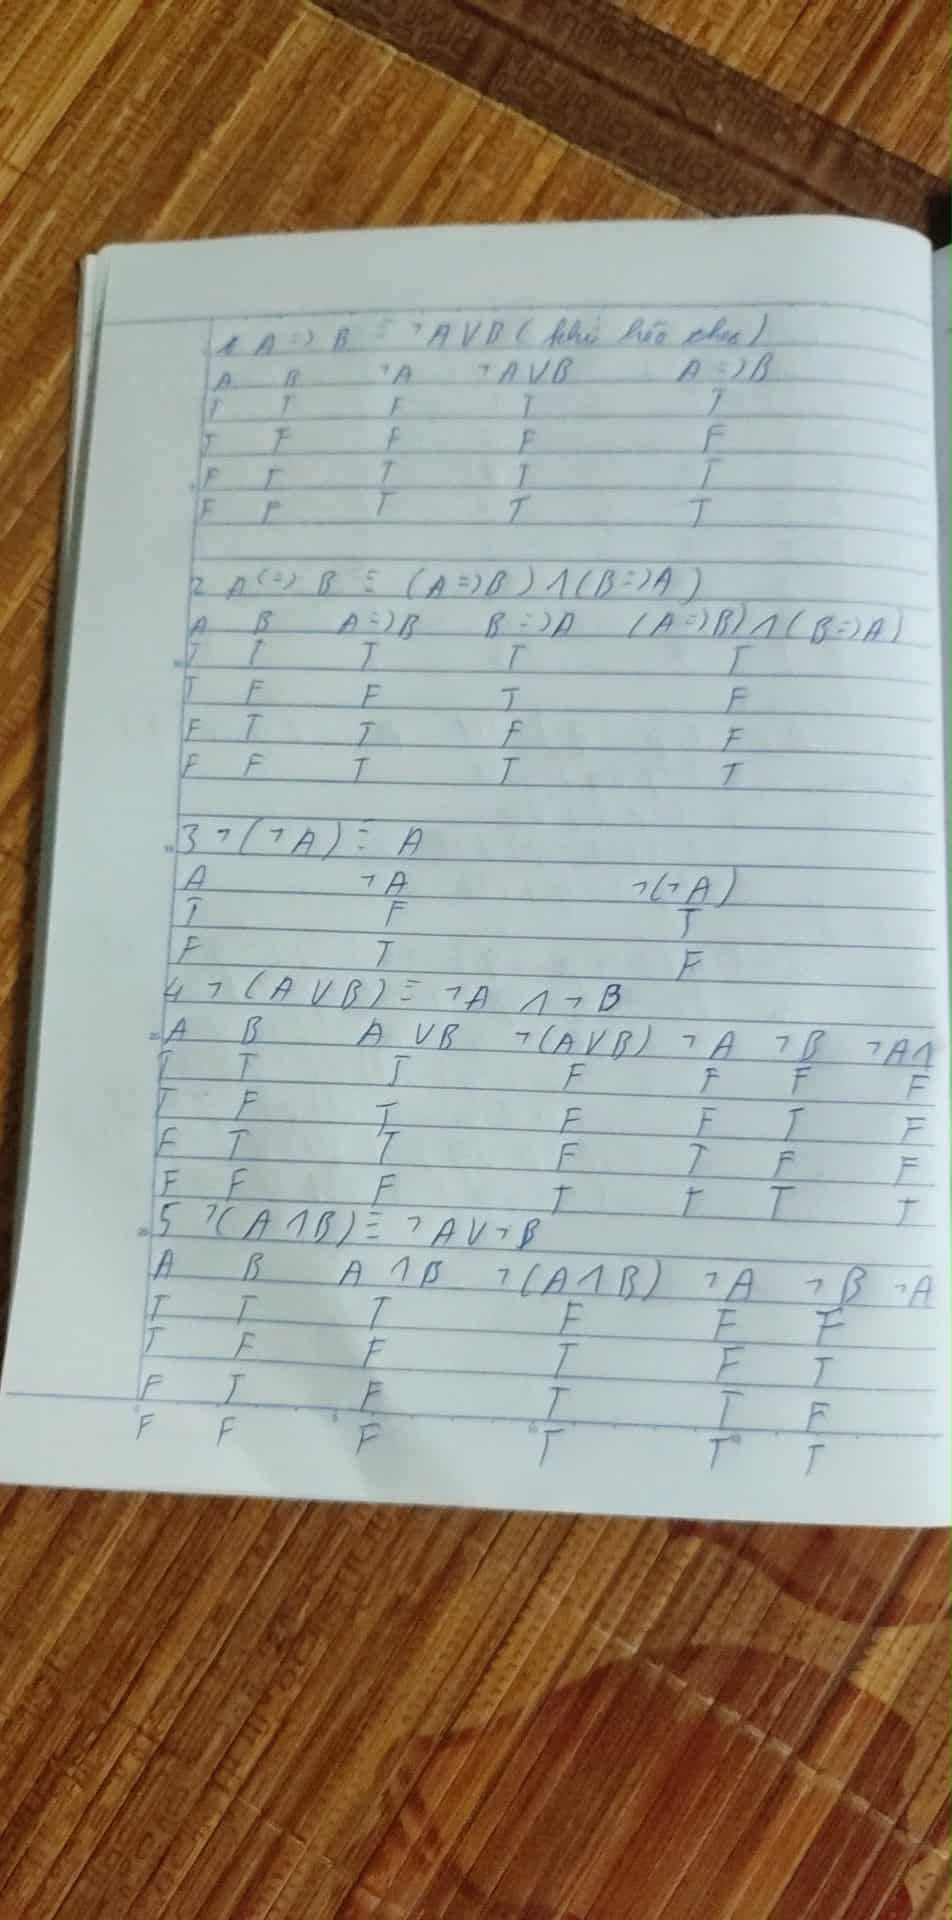 1 A => B ≡ ¬A V B ( khử kéo theo )
A B ¬A ¬A V B A => B
T T F T T
T F F F F
F T T T T
F F T T T
2 A <=> B ≡ (A => B) ∧ (B => A)
A B A => B B => A (A => B) ∧ (B => A)
T T T T T
T F F T F
F T T F F
F F T T T
3 ¬(¬A) ≡ A
A ¬A ¬(¬A)
T F T
F T F
4 ¬(A V B) ≡ ¬A ∧ ¬B
A B A V B ¬(A V B) ¬A ¬B ¬A ∧
T T T F F F F
T F T F F T F
F T T F T F F
F F F T T T T
5 ¬(A ∧ B) ≡ ¬A V ¬B
A B A ∧ B ¬(A ∧ B) ¬A ¬B ¬A
T T T F F F
T F F T F T
F T F T T F
F F F T T T